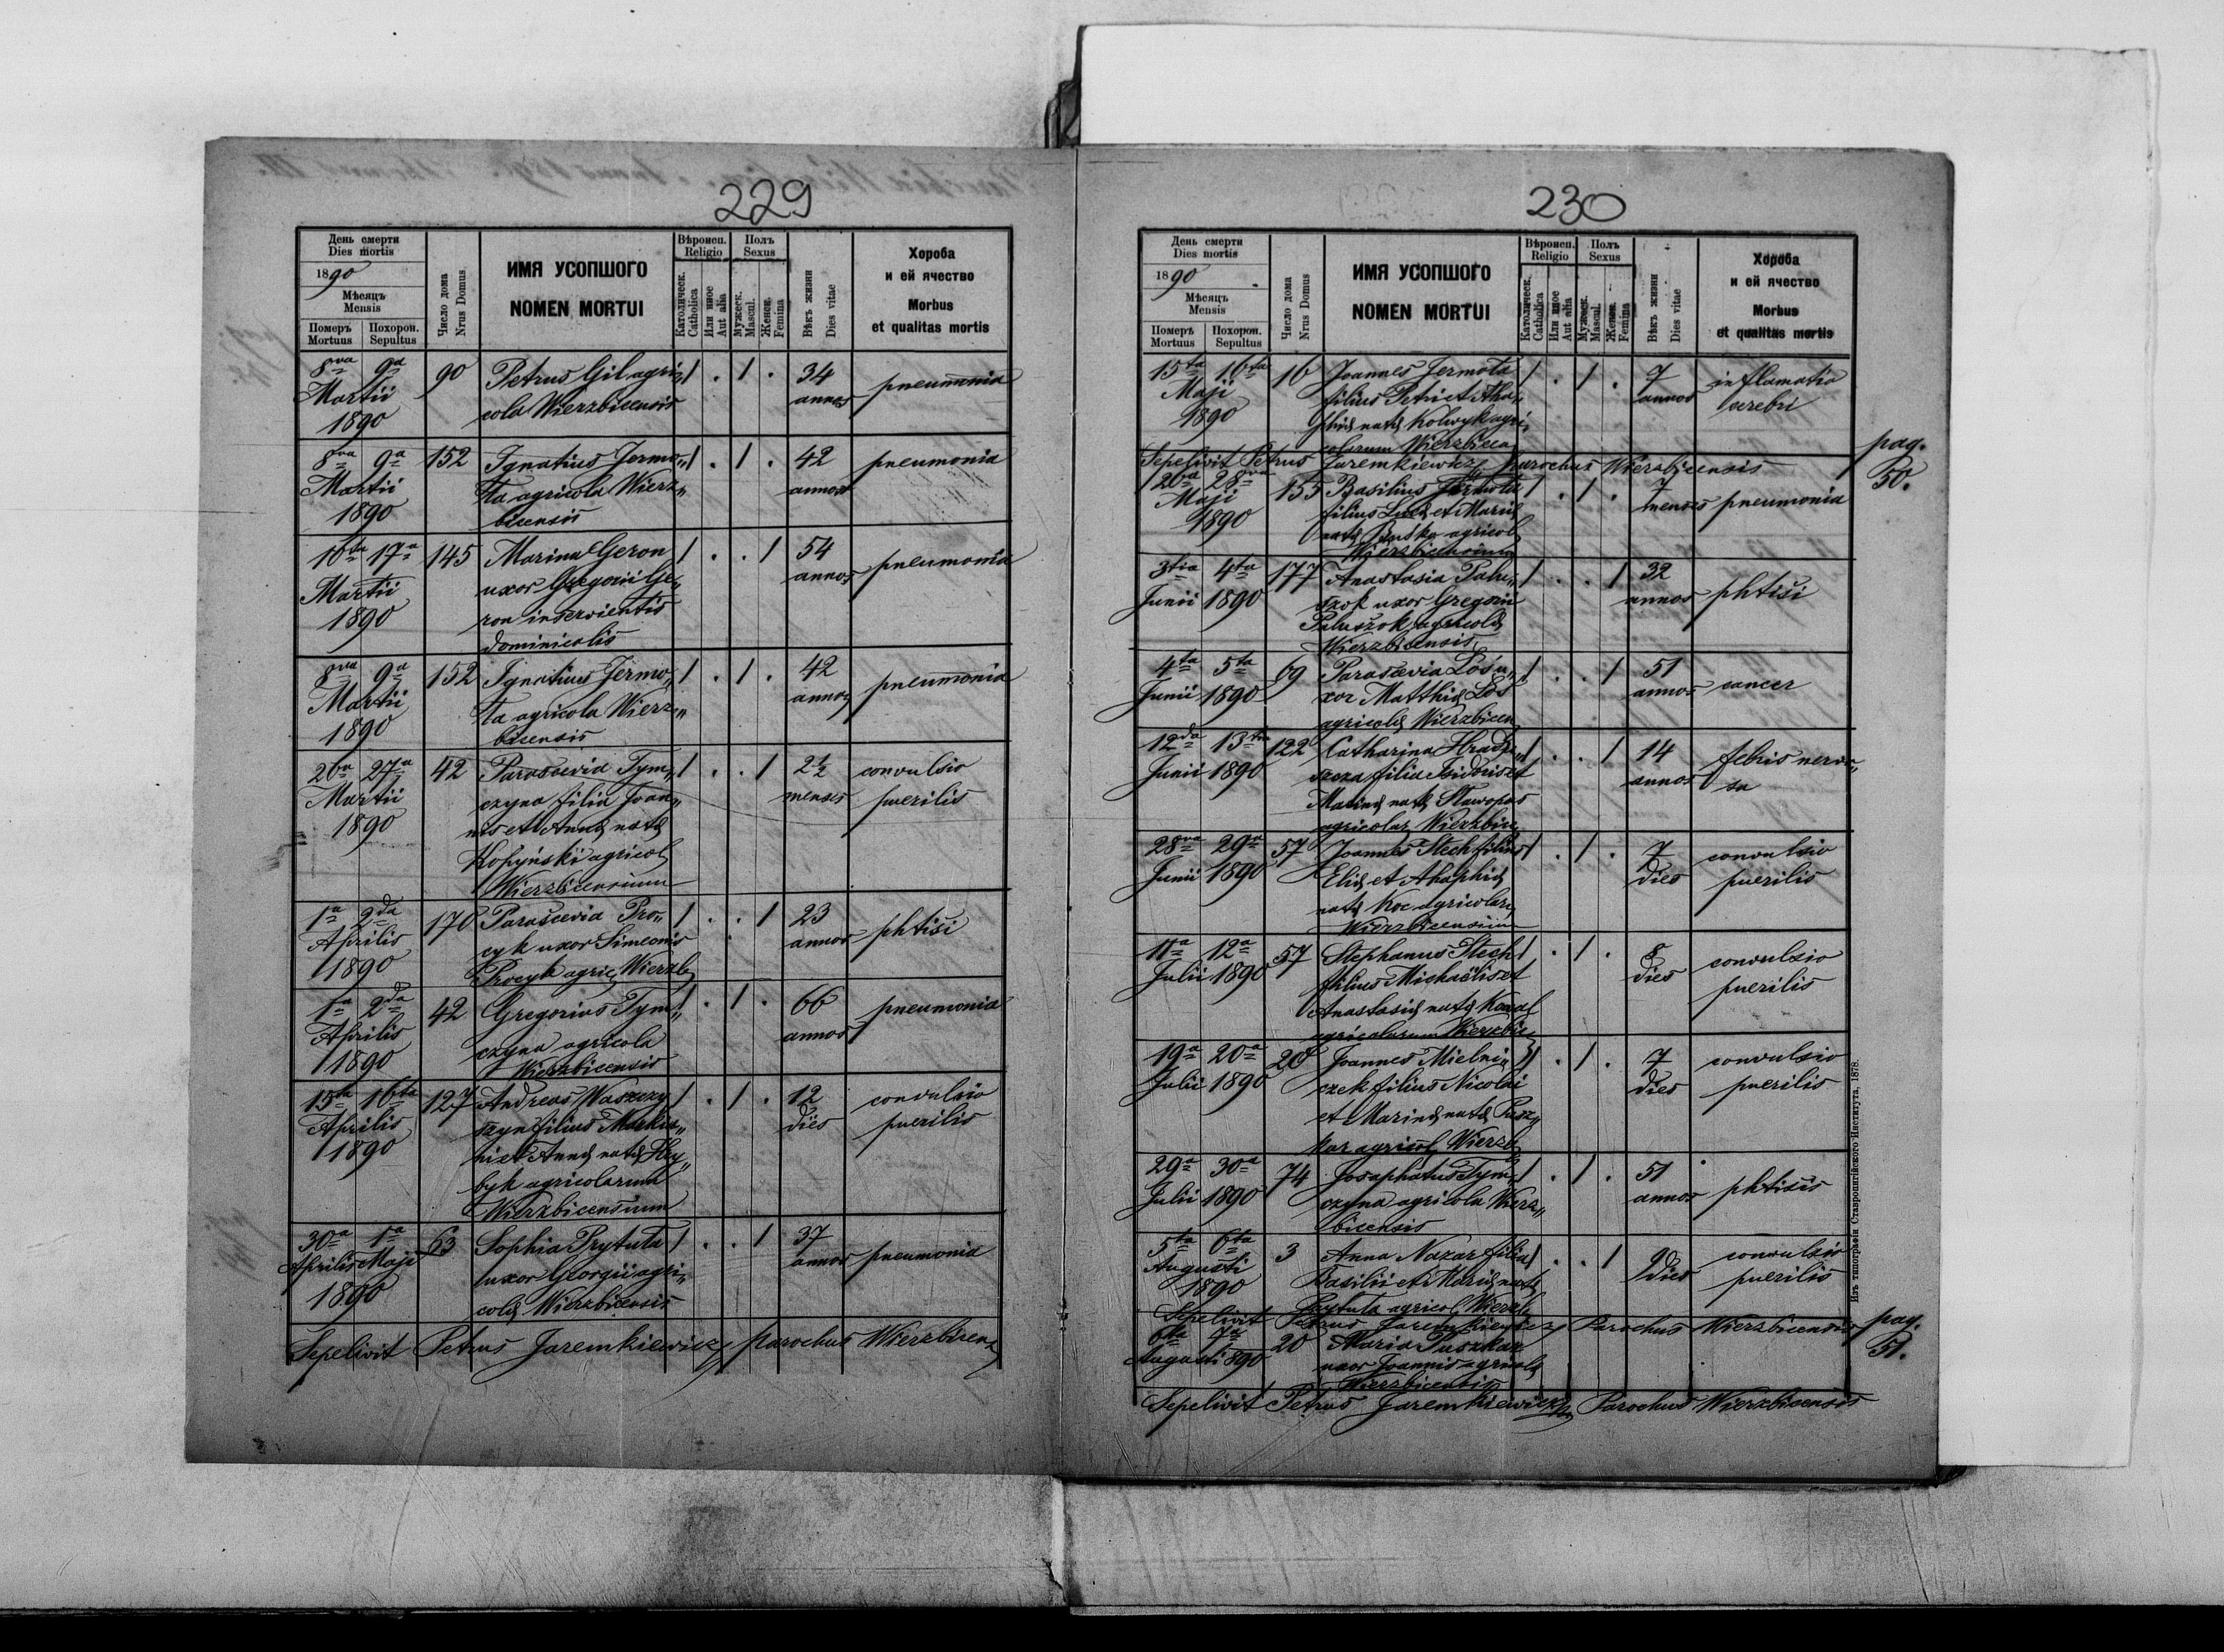 229
День смерти
Dies mortis
1890
Мѣсяцъ
Mensis
Померъ Похорон.
Mortuus Sepultus
Число дома
Nrus Domus
ИМЯ УСОПШОГО
NOMEN MORTUI
Вѣроисп.
Religio
Католическ.
Catholica
Или иное
Aut alia
Полъ
Sexus
Мужеск.
Mascul.
Женск.
Femina
Вѣкъ жизни
Dies vitae
Хороба
и ей ячество
Morbus
et qualitas mortis
8va 9a 90 Petrus Gil agri„ / . / . 34 pneumonia
Martii cola Wierzbicensis annos
1890
8va 9a 152 Ignatius Jermo„ / . / . 42 pneumonia
Martii ta agricola Wierz„ annos
1890 bicensis
16ta 17a 145 Marina Geron / . . / 54 pneumonia
Martii uxor Gregorii Ge„ annos
1890 ron inservientis
dominicalis
8va 9a 152 Ignatius Jermo„ / . / . 42 pneumonia
Martii ta agricola Wierz„ annos
1890 bicensis
26a 27a 42 Parascevia Tym„ / . . / 2½ convulsio
Martii czyna filia Joan„ menses puerilis
1890 nis et Annae natae
Kopyński agricol
Wierzbicensium
1a 2da 170 Parascevia Pro„ / . . / 23 phtisi
Aprilis cyk uxor Simeonis annos
1890 Procyk agric Wierzb
1a 2da 42 Gregorius Tym„ / . / . 66 pneumonia
Aprilis czyna agricola annos
1890 Wierzbicensis
15ta 16ta 127 Andreas Waszczy / . / . 12 convulsio
Aprilis szyn filius dies puerilis
1890 et Annae natae
byk agricolarum
Wierzbicensium
30a 1a 63 Sophia Prytuła / . . / 37 pneumonia
Aprilis Maji uxor Georgii agri„ annos
1890 colae Wierzbicensis
Sepelivit Petrus Jaremkiewicz parochus Wierzbicens
230
День смерти
Dies mortis
1890
Мѣсяцъ
Mensis
Померъ Похорон.
Mortuus Sepultus
Число дома
Nrus Domus
ИМЯ УСОПШОГО
NOMEN MORTUI
Вѣроисп.
Religio
Католическ.
Catholica
Или иное
Aut alia
Полъ
Sexus
Мужеск.
Mascul.
Женск.
Femina
Вѣкъ жизни
Dies vitae
Хороба
и ей ячество
Morbus
et qualitas mortis
15ta 16ta 16 Joannes Jermota / . / . 7 inflamatio
Maji filius Petri et Aha„ annos cerebri
1890 phiae natae Kolwyk agri„
colarum Wierzbicen
Sepelivit Petrus Jaremkiewicz parochus Wierzbicensis pag.
50.
20a 28va 155 Basilius Jermota / . / . 7 pneumonia
Maji filius Lucae et Mariae menses
1890 natae Buśko agricol
Wierzbicensium
3tia 4ta 177 Anastasia Palu„ / . . / 32 phtisi
Junii 1890 szok uxor Gregorii annos
Paluszok agricolae
Wierzbicensis
4ta 5ta 69 Parascevia Łoś u„ / . . / 51 cancer
Junii 1890 xor Matthiae Łoś annos
agricolae Wierzbicen
12da 13tia 122 Catharina / . . / 14 febris nervo„
Junii 1890 filia Isidori et annos sa
Marinae natae Staropas
agricolar Wierzbice
28va 29a 57 Joannes Stech filius / . / . 7 convulsio
Junii 1890 Eliae et Ahaphiae dies puerilis
natae Koc agricolar
Wierzbicensium
11a 12a 57 Stephanus Stech / . / . 8 convulsio
Julii 1890 filius Michaëlis et dies puerilis
Anastasiae natae Kowal
agricolarum Wierzbic
19a 20a 20 Joannes Mielni„ / . / . 7 convulsio
Julii 1890 czek filius Nicolai dies puerilis
et Marinae natae Pusz„
kar agricol Wierzb
29a 30a 74 Josaphatus Tym„ / . / . 51 phtisis
Julii 1890 czyna agricola Wierz„ annos
bicensis
5ta 6ta 3 Anna Nazar filia / . . / 9 convulsio
Augusti Basilii et Mariae natae dies puerilis
1890 Prytuła agricol Wierzb
Sepelivit Petrus Jaremkiewicz Parochus Wierzbicensis pag.
51.
6ta 7a 20 Maria Puszkar
Augusti 1890 uxor Joannis agricolae
Wierzbicensis
Sepelivit Petrus Jaremkiewicz Parochus Wierzbicensis
Изъ типографіи Ставропигійского Института. 1878.